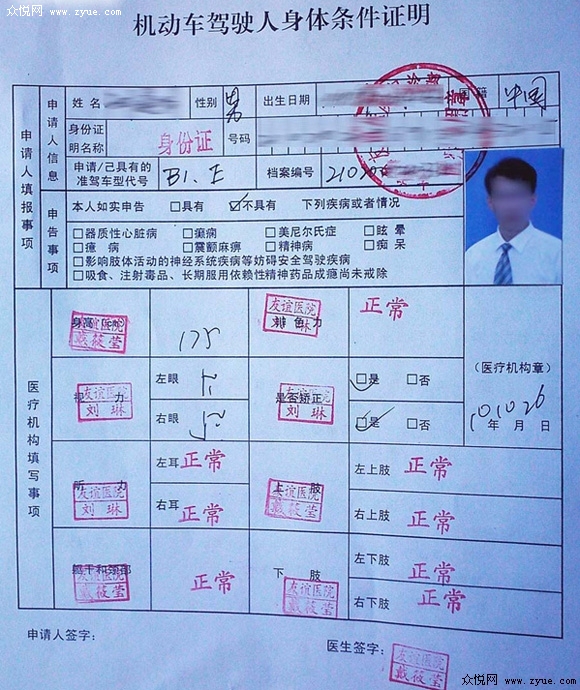 众悦网 www.zyue.com
机动车驾驶人身体条件证明
申请人填报事项
申请人信息
姓名 性别 男 出生日期 国籍 中国
身份证明名称 身份证 号码
申请/已具有的准驾车型代号 B1、E 档案编号 210
申告事项
本人如实申告 □具有 ☑不具有 下列疾病或者情况
□器质性心脏病 □癫痫 □美尼尔氏症 □眩晕
□癔病 □震颤麻痹 □精神病 □痴呆
□影响肢体活动的神经系统疾病等妨碍安全驾驶疾病
□吸食、注射毒品、长期服用依赖性精神药品成瘾尚未戒除
医疗机构填写事项
身高(cm) 友谊医院 戴筱莹 175 辨色力 友谊医院 刘琳 正常
视力 友谊医院 刘琳 左眼 是否矫正 友谊医院 刘琳 ☑是 □否
右眼 ☑是 □否
(医疗机构章)
10年10月26日
听力 友谊医院 刘琳 左耳 正常 上肢 友谊医院 戴筱莹 左上肢 正常
右耳 正常 右上肢 正常
躯干和颈部 友谊医院 戴筱莹 正常 下肢 友谊医院 戴筱莹 左下肢 正常
右下肢 正常
申请人签字:
医生签字: 友谊医院 戴筱莹
众悦网 www.zyue.com